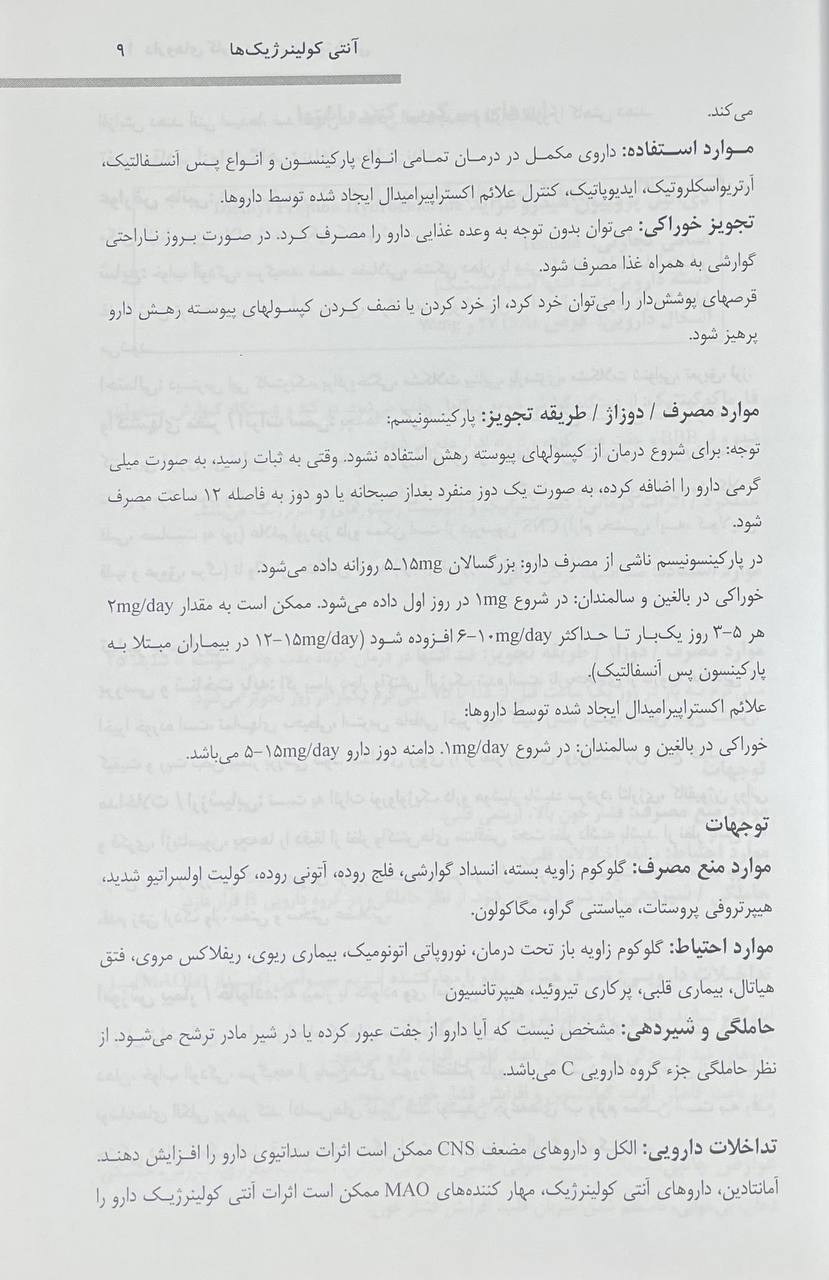 آنتی کولینرژیک‌ها ۹
می‌کند.
موارد استفاده: داروی مکمل در درمان تمامی انواع پارکینسون و انواع پس آنسفالتیک،
آرتریواسکلروتیک، ایدیوپاتیک، کنترل علائم اکستراپیرامیدال ایجاد شده توسط داروها.
تجویز خوراکی: می‌توان بدون توجه به وعده غذایی دارو را مصرف کرد. در صورت بروز ناراحتی
گوارشی به همراه غذا مصرف شود.
قرصهای پوشش‌دار را می‌توان خرد کرد، از خرد کردن یا نصف کردن کپسولهای پیوسته رهش دارو
پرهیز شود.
موارد مصرف / دوزاژ / طریقه تجویز: پارکینسونیسم:
توجه: برای شروع درمان از کپسولهای پیوسته رهش استفاده نشود. وقتی به ثبات رسید، به صورت میلی
گرمی دارو را اضافه کرده، به صورت یک دوز منفرد بعداز صبحانه یا دو دوز به فاصله ۱۲ ساعت مصرف
شود.
در پارکینسونیسم ناشی از مصرف دارو: بزرگسالان ۵ـ۱۵mg روزانه داده می‌شود.
خوراکی در بالغین و سالمندان: در شروع ۱mg در روز اول داده می‌شود. ممکن است به مقدار ۲mg/day
هر ۵–۳ روز یک‌بار تا حداکثر ۶–۱۰mg/day افزوده شود (۱۲–۱۵mg/day در بیماران مبتلا به
پارکینسون پس آنسفالتیک).
علائم اکستراپیرامیدال ایجاد شده توسط داروها:
خوراکی در بالغین و سالمندان: در شروع ۱mg/day. دامنه دوز دارو ۵–۱۵mg/day می‌باشد.
توجهات
موارد منع مصرف: گلوکوم زاویه بسته، انسداد گوارشی، فلج روده، آتونی روده، کولیت اولسراتیو شدید،
هیپرتروفی پروستات، میاستنی گراو، مگاکولون.
موارد احتیاط: گلوکوم زاویه باز تحت درمان، نوروپاتی اتونومیک، بیماری ریوی، ریفلاکس مروی، فتق
هیاتال، بیماری قلبی، پرکاری تیروئید، هیپرتانسیون
حاملگی و شیردهی: مشخص نیست که آیا دارو از جفت عبور کرده یا در شیر مادر ترشح می‌شود. از
نظر حاملگی جزء گروه دارویی C می‌باشد.
تداخلات دارویی: الکل و داروهای مضعف CNS ممکن است اثرات سداتیوی دارو را افزایش دهند.
آمانتادین، داروهای آنتی کولینرژیک، مهار کننده‌های MAO ممکن است اثرات آنتی کولینرژیک دارو را